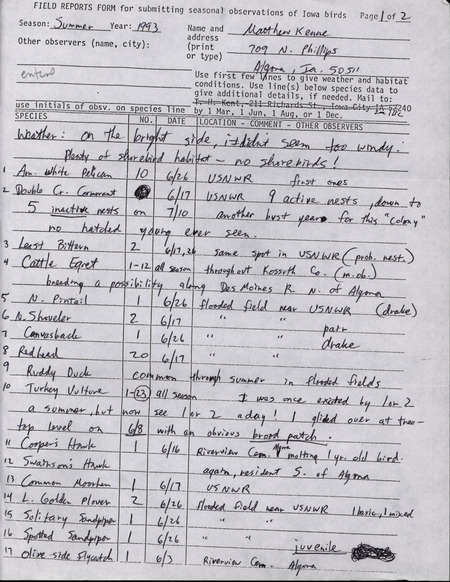 FIELD REPORTS FORM for submitting seasonal observations of Iowa birds Page 1 of 2
Season: Summer Year: 1993 Name and address (print or type) Matthew Kenne
Other observers (name, city): 709 N. Phillips
Algona, Ia. 50511
entered
Use first few lines to give weather and habitat
conditions. Use line(s) below species data to
give additional details, if needed. Mail to:
T. H. Kent, 211 Richards St., Iowa City IA 52240
use initials of obsv. on species line by 1 Mar, 1 Jun, 1 Aug, or 1 Dec.
SPECIES NO. DATE LOCATION - COMMENT - OTHER OBSERVERS
Weather: on the bright side, it didn't seem too windy.
Plenty of shorebird habitat - no shorebirds!
1 Am. White Pelican 10 6/26 USNWR first ones
2 Double Cr. Cormorant 6/17 USNWR 9 active nests, down to
5 inactive nests on 7/10 another bust year for this "colony"
no hatched young ever seen.
3 Least Bittern 2 6/17,26 same spot in USNWR (prob. nest.)
4 Cattle Egret 1-12 all season throughout Kossuth Co. (m.ob.)
breeding a possibility along Des Moines R N. of Algona
5 N. Pintail 1 6/26 flooded field near USNWR (drake)
6 N. Shoveler 2 6/17 " " pair
7 Canvasback 1 6/26 " " drake
8 Redhead 20 6/17 " "
9 Ruddy Duck common through summer in flooded fields
10 Turkey Vulture 1-23 all season I was once excited by 1 or 2
a summer, but now see 1 or 2 a day! 1 glided over at tree-
top level on 6/8 with an obvious brood patch.
11 Cooper's Hawk 1 6/16 Riverview Cem. Algona molting 1 yr. old bird.
12 Swainson's Hawk again, resident S. of Algona
13 Common Moorhen 1 6/17 USNWR
14 L. Golden Plover 2 6/26 flooded field near USNWR 1 basic, 1 mixed
15 Solitary Sandpiper 1 6/26 " "
16 Spotted Sandpiper 1 6/26 " " juvenile
17 Olive-side Flycatch 1 6/3 Riverview Cem. Algona